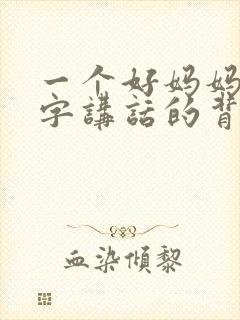 一个好妈妈
字講話的背
血染傾黎